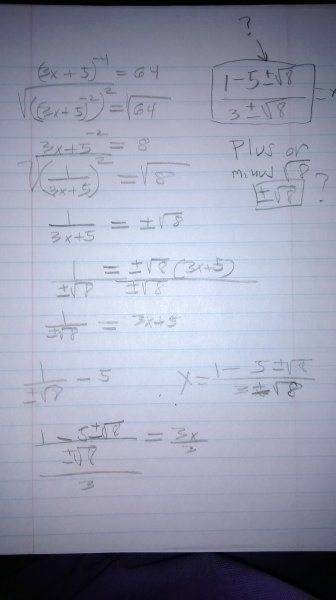 (3x+5)^-4 = 64
√((3x+5)^-2)^2 = √64
3x+5^-2 = 8
√(1/(3x+5))^2 = √8
1/(3x+5) = ±√8
1/±√8 = ±√8(3x+5)/±√8
1/±√8 = 3x+5
1/±√8 - 5
(1 - 5±√8/±√8)/3 = 3x/3
?
(1-5±√8)/(3±√8) = x
Plus or
minus √8
±√8 ?
x = (1 - 5±√8)/(3±√8)